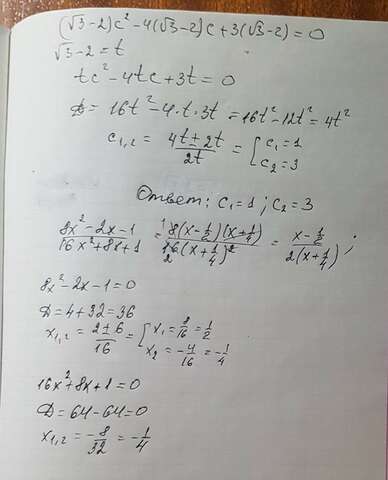 (√3-2)c²-4(√3-2)c+3(√3-2)=0
√3-2=t
tc²-4tc+3t=0
D=16t²-4·t·3t=16t²-12t²=4t²
c₁,₂=(4t±2t)/(2t)=[c₁=1 c₂=3
Ответ: c₁=1; c₂=3
(8x²-2x-1)/(16x²+8x+1)=(¹8(x-1/2)(x+1/4))/(₂16(x+1/4)²)=(x-1/2)/(2(x+1/4));
8x²-2x-1=0
D=4+32=36
x₁,₂=(2±6)/16=[x₁=8/16=1/2 x₂=-4/16=-1/4
16x²+8x+1=0
D=64-64=0
x₁,₂=-8/32=-1/4